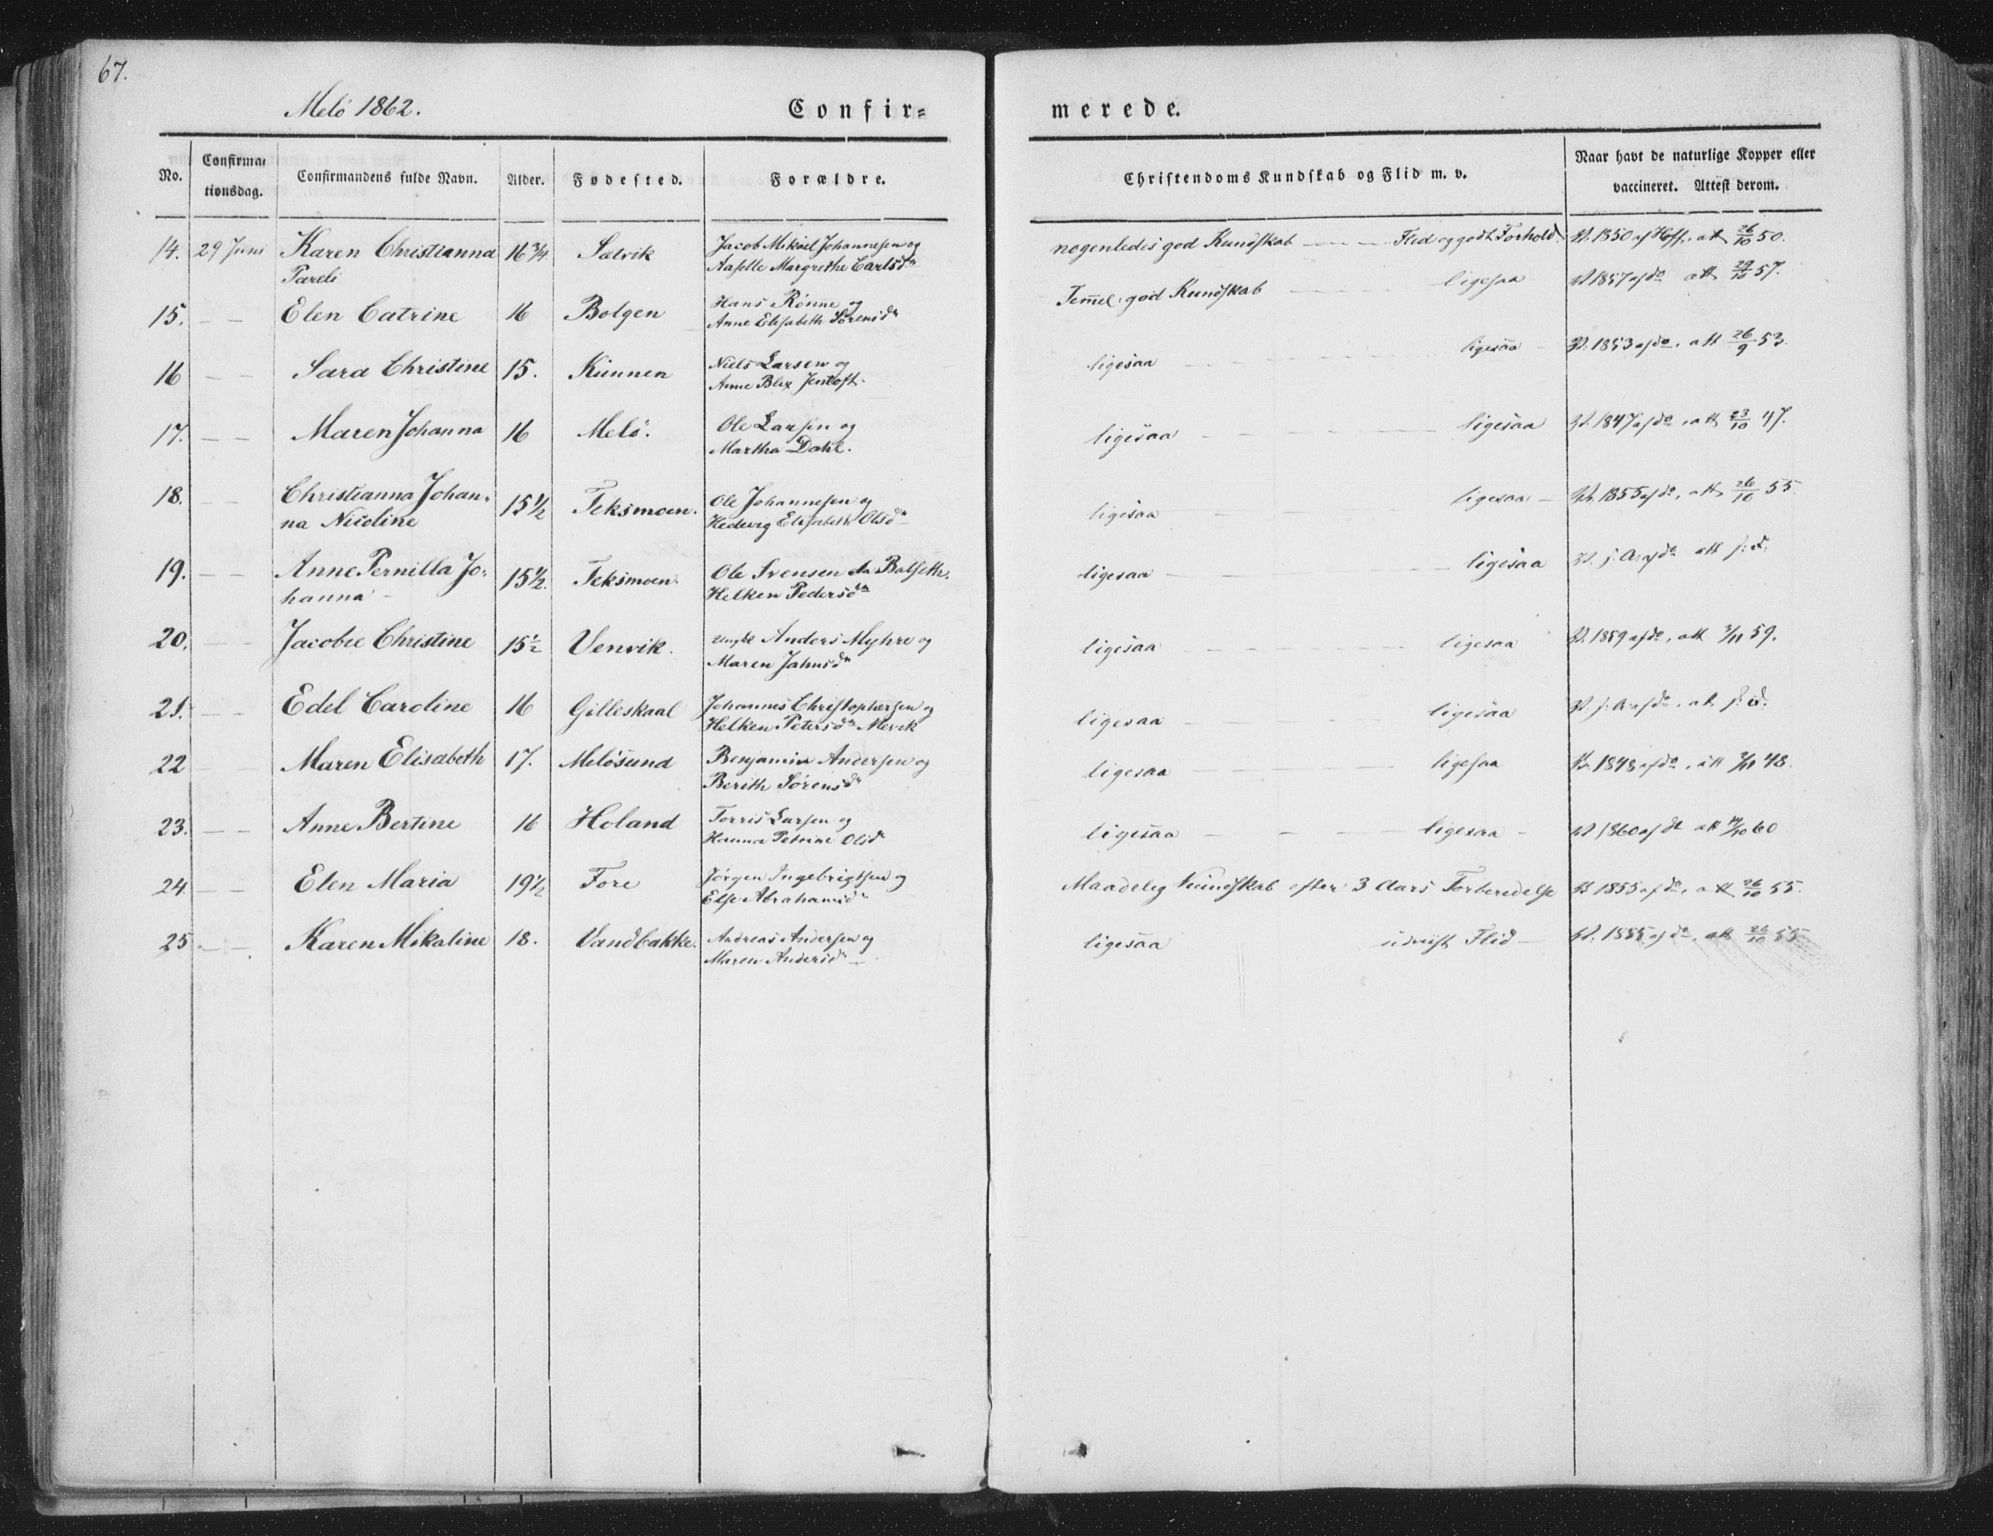 67.
Melö 1862.
Confir=
merede.
No.
Confirma=
tionsdag.
Confirmandens fulde Navn.
Alder.
Fødested.
Forældre.
Christendoms Kundskab og Flid m. v.
Naar havt de naturlige Kopper eller
vaccineret. Attest derom.
14. 29 Juni Karen Christianna 16 3/4 Sælvik Jacob Mikael Johannesen og nogenledes god Kundskab — Flid og godt Forhold. V. 1850 af Hoff, att 26/10 50.
Pareli Margrethe Carlsdr
15. — — Elen Catrine 16 Bolgen Hans Rönne og Temmel: god Kundskab — ligesaa V 1857 af do att 29/10 57.
Anne Elisabeth Sørensdr
16 — — Sara Christine 15. Kunnen Niels Larsen og ligesaa — ligesaa — V. 1853 af do, att 26/9 53.
Anne Blix Jentoft.
17. — — Maren Johanna 16 Melö. Ole Larsen og ligesaa — ligesaa V. 1847 af do, att 23/10 47.
Martha Dahl.
18. — — Christianna Johan- 15 1/2 Teksmoen. Ole Johannesen og ligesaa — ligesaa — V. 1855 af do, att 26/10 55.
na Nicoline Hedevig Elisabeth Olsd
19. — Anne Pernilla Jo- 15 1/2. Teksmoen. Ole Svensen Balseth. ligesaa — ligesaa V. s. A. af do att s. d.
hanna — Helken Pedersdr
20. — — Jacobee Christine 15 1/2 Venvik. Anders Myhre og ligesaa — ligesaa V. 1859 af do, att 3/11 59.
Maren Jahnsdr
21. — — Edel Caroline 16 Gilleskaal Johannes Christophersen og ligesaa — ligesaa V. s. A. af do, att s. d.
Helken Petersdr Mevik
22 — Maren Elisabeth 17. Melösund Benjamin Andersen og ligesaa — ligesaa V. 1848 af do, att 48.
Berith Sørensdr
23. — — Anne Bertine 16 Holand Torris Larsen og ligesaa — ligesaa — V 1860 af do att 14/10 60
Hanna Petrine Olsd
24 — — Elen Maria 19 1/2 Fore Jørgen Ingebrigtsen og Maadelig Kundskab efter 3 Aars Forberedelse V 1855 af do, att 26/10 55.
Else Abrahamsdr
25 — Karen Mikaline 18. Vandbakke. Andreas Andersen og ligesaa udviist Flid — V. 1855 af do, att 26/10 55.
Maren Andersdr —